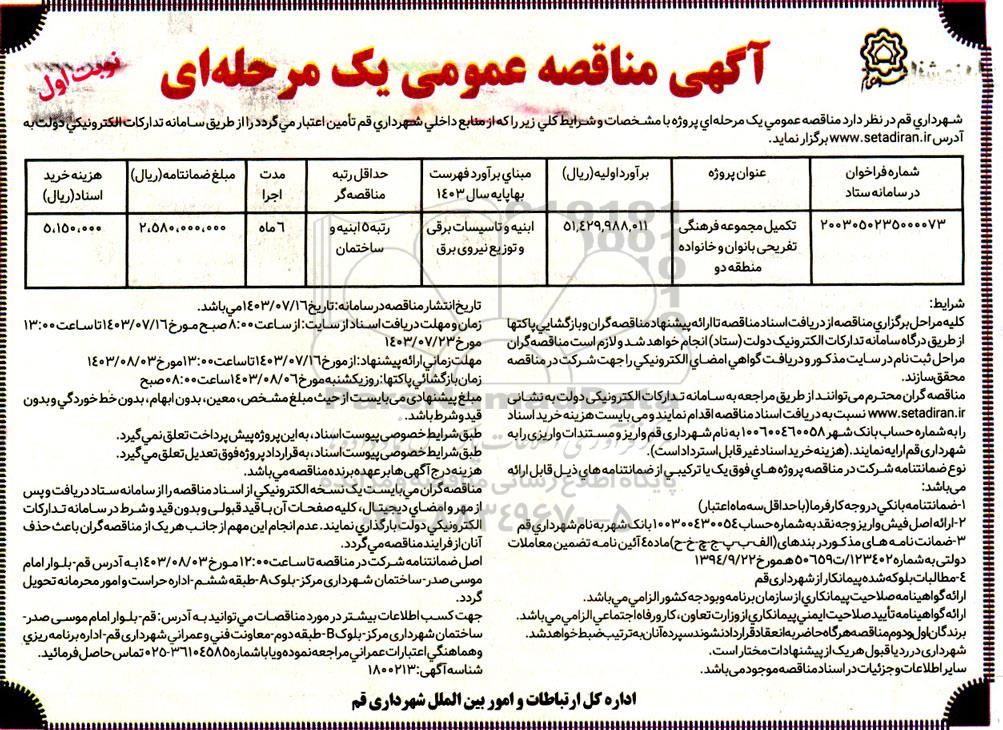 آگهی مناقصه عمومی یک مرحله‌ای
نوبت اول
شهرداري قم در نظر دارد مناقصه عمومي يک مرحله‌اي پروژه با مشخصات و شرايط کلي زير را که از منابع داخلي شهرداري قم تأمين اعتبار مي‌گردد را از طريق سامانه تدارکات الکترونيکي دولت به
آدرس www.setadiran.ir برگزار نمايد.
شماره فراخوان در سامانه ستاد
عنوان پروژه
برآورد اوليه (ريال)
مبناي برآورد فهرست بها پايه سال ۱۴۰۳
حداقل رتبه مناقصه‌گر
مدت اجرا
مبلغ ضمانتنامه (ريال)
هزينه خريد اسناد (ريال)
۲۰۰۳۰۵۰۲۳۵۰۰۰۰۷۳
تکميل مجموعه فرهنگي تفريحي بانوان و خانواده منطقه دو
۵۱,۴۲۹,۹۸۸,۰۱۱
ابنيه و تاسيسات برقي و توزيع نيروي برق
رتبه ۵ ابنيه و ساختمان
۶ ماه
۲,۵۸۰,۰۰۰,۰۰۰
۵,۱۵۰,۰۰۰
شرايط:
کليه مراحل برگزاري مناقصه از دريافت اسناد مناقصه تا ارائه پيشنهاد مناقصه گران و بازگشايي پاکتها
از طريق درگاه سامانه تدارکات الکترونيک دولت (ستاد) انجام خواهد شد و لازم است مناقصه گران
مراحل ثبت نام در سايت مذکور و دريافت گواهي امضاي الکترونيکي را جهت شرکت در مناقصه
محقق سازند.
مناقصه گران محترم مي‌توانند از طريق مراجعه به سامانه تدارکات الکترونيکي دولت به نشاني
www.setadiran.ir نسبت به دريافت اسناد مناقصه اقدام نمايند و مي بايست هزينه خريد اسناد
را به شماره حساب بانک شهر ۱۰۰۶۰۰۴۶۰۰۵۸ به نام شهرداري قم واريز و مستندات واريزي را به
شهرداري قم ارايه نمايند. (هزينه خريد اسناد غير قابل استرداد است).
نوع ضمانتنامه شرکت در مناقصه پروژه هاي فوق يک يا ترکيبي از ضمانتنامه هاي ذيل قابل ارائه
مي‌باشد:
۱-ضمانتنامه بانکي در وجه کارفرما (با حداقل سه ماه اعتبار)
۲-ارائه اصل فيش واريز وجه نقد به شماره حساب ۱۰۰۳۰۰۴۳۰۰۵۴ بانک شهر به نام شهرداري قم
۳-ضمانت نامه هاي مذکور در بندهاي (الف-ب-پ-ج-چ-خ-ح) ماده ۴ آئين نامه تضمين معاملات
دولتي به شماره ۱۲۳۴۰۲/ت۵۰۶۵۹ه مورخ ۱۳۹۴/۹/۲۲
۴-مطالبات بلوکه شده پيمانکار از شهرداري قم
ارائه گواهينامه صلاحيت پيمانکاري از سازمان برنامه و بودجه کشور الزامي مي‌باشد.
ارائه گواهينامه تأييد صلاحيت ايمني پيمانکاري از وزارت تعاون، کار و رفاه اجتماعي الزامي مي باشد.
برندگان اول و دوم مناقصه هرگاه حاضر به انعقاد قرارداد نشوند سپرده آنان به ترتيب ضبط خواهد شد.
شهرداري در رد يا قبول هر يک از پيشنهادات مختار است.
ساير اطلاعات و جزئيات در اسناد مناقصه موجود مي باشد.
تاريخ انتشار مناقصه در سامانه: تاريخ ۱۴۰۳/۰۷/۱۶ مي باشد.
زمان و مهلت دريافت اسناد از سايت: از ساعت ۸:۰۰ صبح مورخ ۱۴۰۳/۰۷/۱۶ تا ساعت ۱۳:۰۰
مورخ ۱۴۰۳/۰۷/۲۳
مهلت زماني ارائه پيشنهاد: از مورخ ۱۴۰۳/۰۷/۱۶ تا ساعت ۱۳:۰۰ مورخ ۱۴۰۳/۰۸/۰۳
زمان بازگشائي پاکتها: روز يکشنبه مورخ ۱۴۰۳/۰۸/۰۶ ساعت ۰۸:۰۰ صبح
مبلغ پيشنهادي مي بايست از حيث مبلغ مشخص، معين، بدون ابهام، بدون خط خوردگي و بدون
قيد و شرط باشد.
طبق شرايط خصوصي پيوست اسناد، به اين پروژه پيش پرداخت تعلق نمي گيرد.
طبق شرايط خصوصي پيوست اسناد، به قرارداد پروژه فوق تعديل تعلق مي گيرد.
هزينه درج آگهي ها بر عهده برنده مناقصه مي باشد.
مناقصه گران مي بايست يک نسخه الکترونيکي از اسناد مناقصه را از سامانه ستاد دريافت و پس
از مهر و امضاي ديجيتال، کليه صفحات آن با قيد قبولي و بدون قيد و شرط در سامانه تدارکات
الکترونيکي دولت بارگذاري نمايند. عدم انجام اين مهم از جانب هر يک از مناقصه گران باعث حذف
آنان از فرايند مناقصه مي گردد.
اصل ضمانتنامه شرکت در مناقصه تا ساعت ۱۲:۰۰ مورخ ۱۴۰۳/۰۸/۰۳ به آدرس قم-بلوار امام
موسي صدر-ساختمان شهرداري مرکز-بلوک A-طبقه ششم-اداره حراست و امور محرمانه تحويل
گردد.
جهت کسب اطلاعات بيشتر در مورد مناقصات مي توانيد به آدرس: قم-بلوار امام موسي صدر-
ساختمان شهرداري مرکز-بلوک B-طبقه دوم-معاونت فني و عمراني شهرداري قم-اداره برنامه ريزي
و هماهنگي اعتبارات عمراني مراجعه نموده و يا با شماره ۳۶۱۰۴۵۸۵-۰۲۵ تماس حاصل فرمائيد.
شناسه آگهي: ۱۸۰۰۲۱۳
اداره کل ارتباطات و امور بین الملل شهرداری قم
ParsNamadData